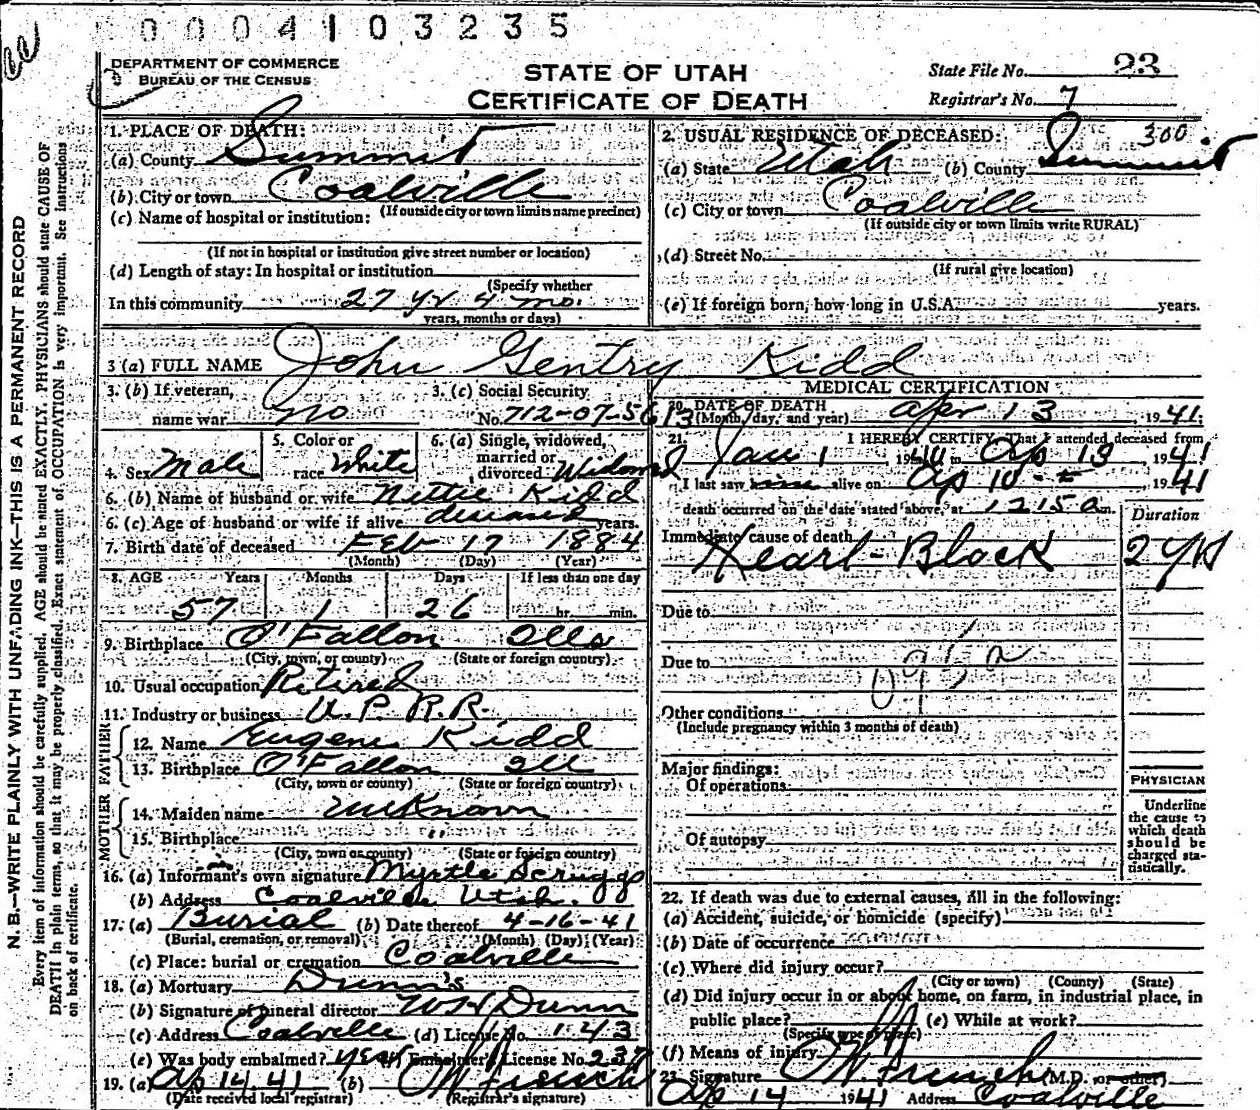 0004103235
DEPARTMENT OF COMMERCE
BUREAU OF THE CENSUS
STATE OF UTAH
CERTIFICATE OF DEATH
State File No. 23
Registrar's No. 7
N. B.—WRITE PLAINLY WITH UNFADING INK—THIS IS A PERMANENT RECORD
Every item of information should be carefully supplied. AGE should be stated EXACTLY. PHYSICIANS should state CAUSE OF
DEATH in plain terms, so that it may be properly classified. Exact statement of OCCUPATION is very important. See instructions
on back of certificate.
1. PLACE OF DEATH:
(a) County Summit
(b) City or town Coalville
(If outside city or town limits name precinct)
(c) Name of hospital or institution:
(If not in hospital or institution give street number or location)
(d) Length of stay: In hospital or institution
(Specify whether
In this community 27 yr 4 mo.
years, months or days)
2. USUAL RESIDENCE OF DECEASED: 300
(a) State Utah (b) County Summit
(c) City or town Coalville
(If outside city or town limits write RURAL)
(d) Street No.
(If rural give location)
(e) If foreign born, how long in U.S.A. years.
3 (a) FULL NAME John Gentry Kidd
3. (b) If veteran,
name war no
3. (c) Social Security
No. 712-07-5613
4. Sex Male
5. Color or
race White
6. (a) Single, widowed,
married or
divorced Widowed
6. (b) Name of husband or wife Nettie Kidd
6. (c) Age of husband or wife if alive deceased years.
7. Birth date of deceased Feb 17 1884
(Month) (Day) (Year)
8. AGE Years Months Days If less than one day
57 1 26 hr. min.
9. Birthplace O'Fallon Ills
(City, town, or county) (State or foreign country)
10. Usual occupation Retired
11. Industry or business U. P. R.R.
FATHER
12. Name Eugene Kidd
13. Birthplace O'Fallon Ill
(City, town or county) (State or foreign country)
MOTHER
14. Maiden name unknown
15. Birthplace "
(City, town or county) (State or foreign country)
16. (a) Informant's own signature Myrtle Scruggs
(b) Address Coalville Utah.
17. (a) Burial (b) Date thereof 4-16-41
(Burial, cremation, or removal) (Month) (Day) (Year)
(c) Place: burial or cremation Coalville
18. (a) Mortuary Dunn's
(b) Signature of funeral director W H Dunn
(c) Address Coalville (d) License No. 143
(e) Was body embalmed? yes (f) Embalmer's License No. 237
19. (a) Ap 14. 41 (b) O W French
(Date received local registrar) (Registrar's signature)
MEDICAL CERTIFICATION
20. DATE OF DEATH
(Month, day, and year) Apr 13, 1941.
21. I HEREBY CERTIFY, That I attended deceased from
Jan 1 1940 to Ap 13, 1941
I last saw him alive on Ap 10, 1941
death occurred on the date stated above, at 1215 a m.
Duration
Immediate cause of death
Heart-Block 2 yrs
Due to
Due to
Other conditions
(Include pregnancy within 3 months of death)
Major findings:
Of operations
Of autopsy
PHYSICIAN
Underline
the cause to
which death
should be
charged sta-
tistically.
22. If death was due to external causes, fill in the following:
(a) Accident, suicide, or homicide (specify)
(b) Date of occurrence
(c) Where did injury occur?
(City or town) (County) (State)
(d) Did injury occur in or about home, on farm, in industrial place, in
public place? (e) While at work?
(Specify type of place)
(f) Means of injury
23. Signature O W. French (M.D. or other)
Ap 14 1941 Address Coalville